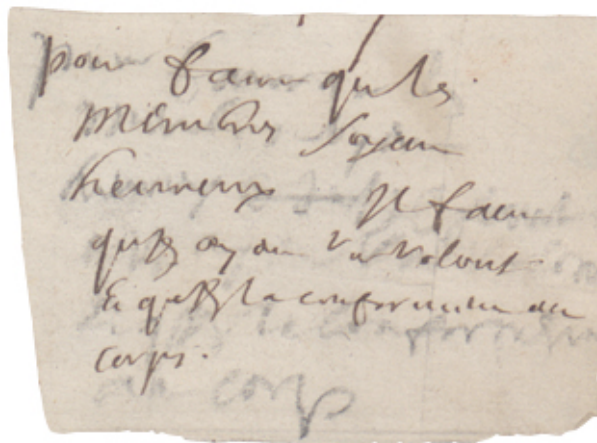 pour faire que les
membres soyent
heureux Il faut
quils ayent un volont
Et quils la conforment au
corps.